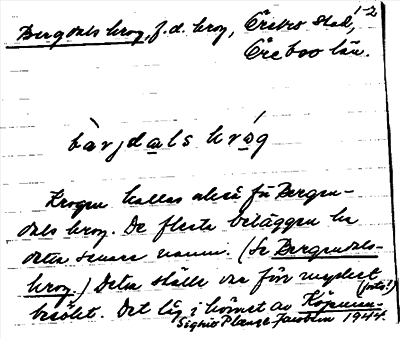 1-2
Bergdals krog, f.d. krog, Örebro stad,
Örebro län.
bàrjdals króg
Krogen kallas också för Bergen-
dals krog. De flesta beläggen har
detta senare namn. (Se Bergendals-
krog.) Detta ställe var förr mycket
besökt. Det låg i hörnet av Köpman-
(forts!)
Sigrid Jacobson 1944.